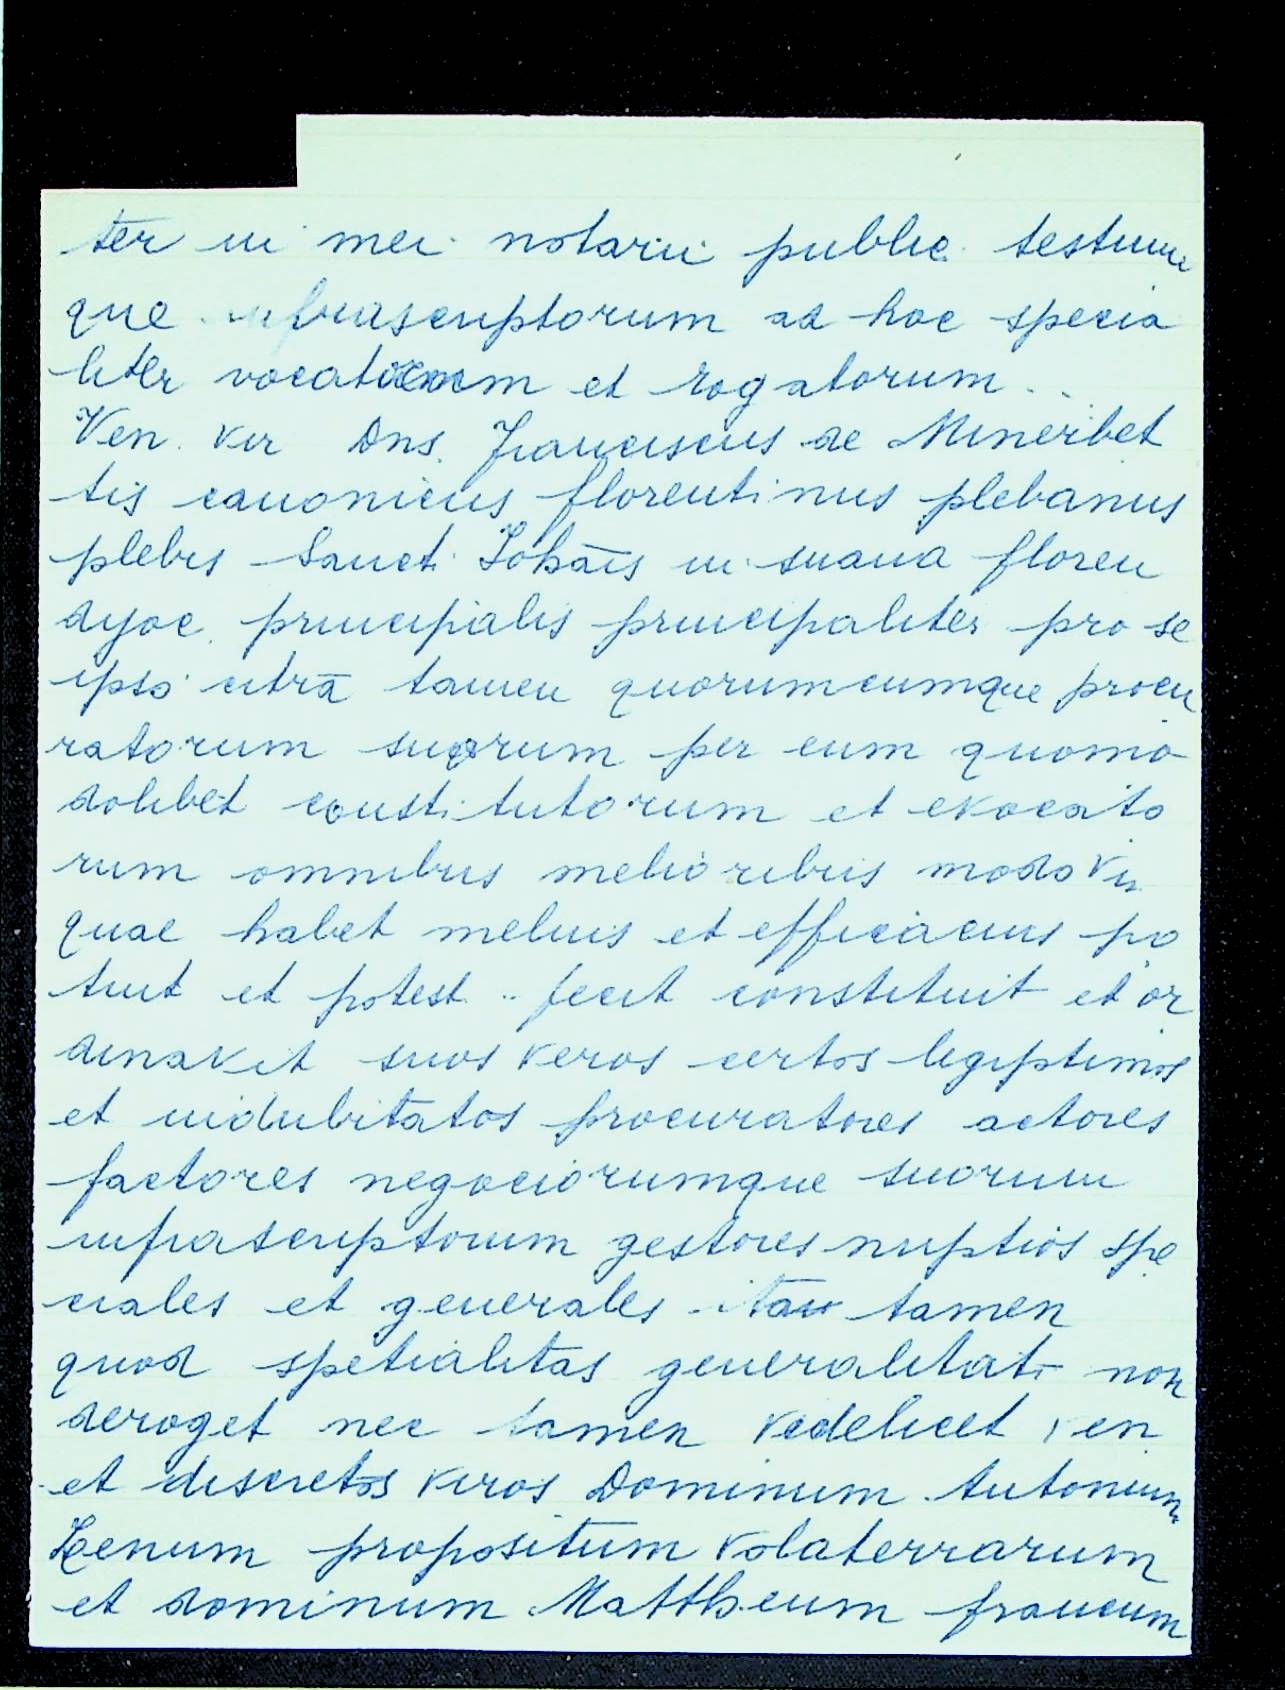 ter in mei notarii public testium
que infrascriptorum ad hoc specia
liter vocatorum et rogatorum ..
Ven. Vir Dns. Franciscus de Minerbet
tis canonicus florentinus plebanus
plebis Sancti Johāis in suana floren
dyoc. principalis principaliter pro se
ipso citrā tamen quorumcumque procu
ratorum suorum per eum quomo
dolibet constitutorum et evocato
rum omnibus melioribus modo Vii
quae habet melius et efficacius po
tuit et potest .. fecit constituit et or
dinavit suos veros certos legiptimos
et indubitatos procuratores actores
factores negociorumque suorum
infrascriptorum gestores nuptios spe
ciales et generales ita tamen
quod spetialitas generalitati non
deroget nec tamen videlicet ven
et discretos viros Dominum Antonium
Zenum propositum Volaterrarum
et dominum Mattheum francum